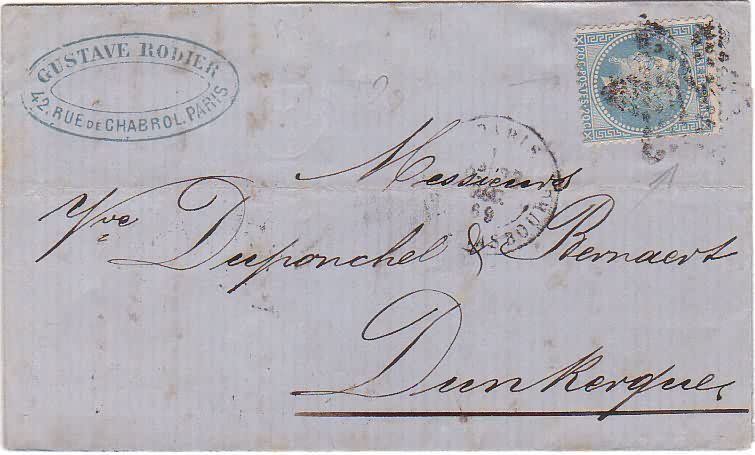 GUSTAVE RODIER
42, RUE DE CHABROL, PARIS
20C POSTES 20C
PARIS
69
Messieurs
Vve Duponchel & Bernaert
Dunkerque
1